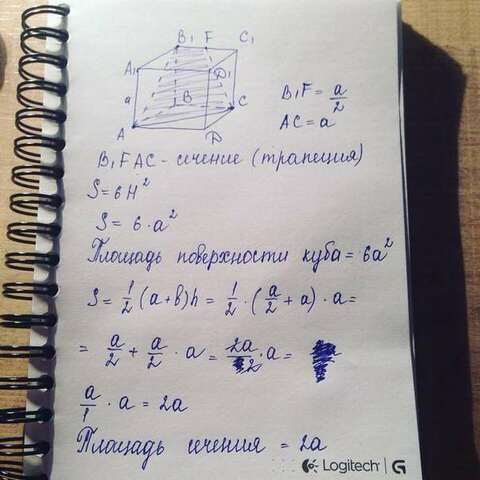 B₁ F C₁
A₁ D₁
a B C
A D
B₁F = a/2
AC = a
B₁FAC - сечение (трапеция)
S = 6H²
S = 6 · a²
Площадь поверхности куба = 6a²
S = 1/2 (a+b)h = 1/2 · (a/2 + a) · a =
= a/2 + a/2 · a = 2a/2 · a =
a/1 · a = 2a
Площадь сечения = 2a
Logitech G